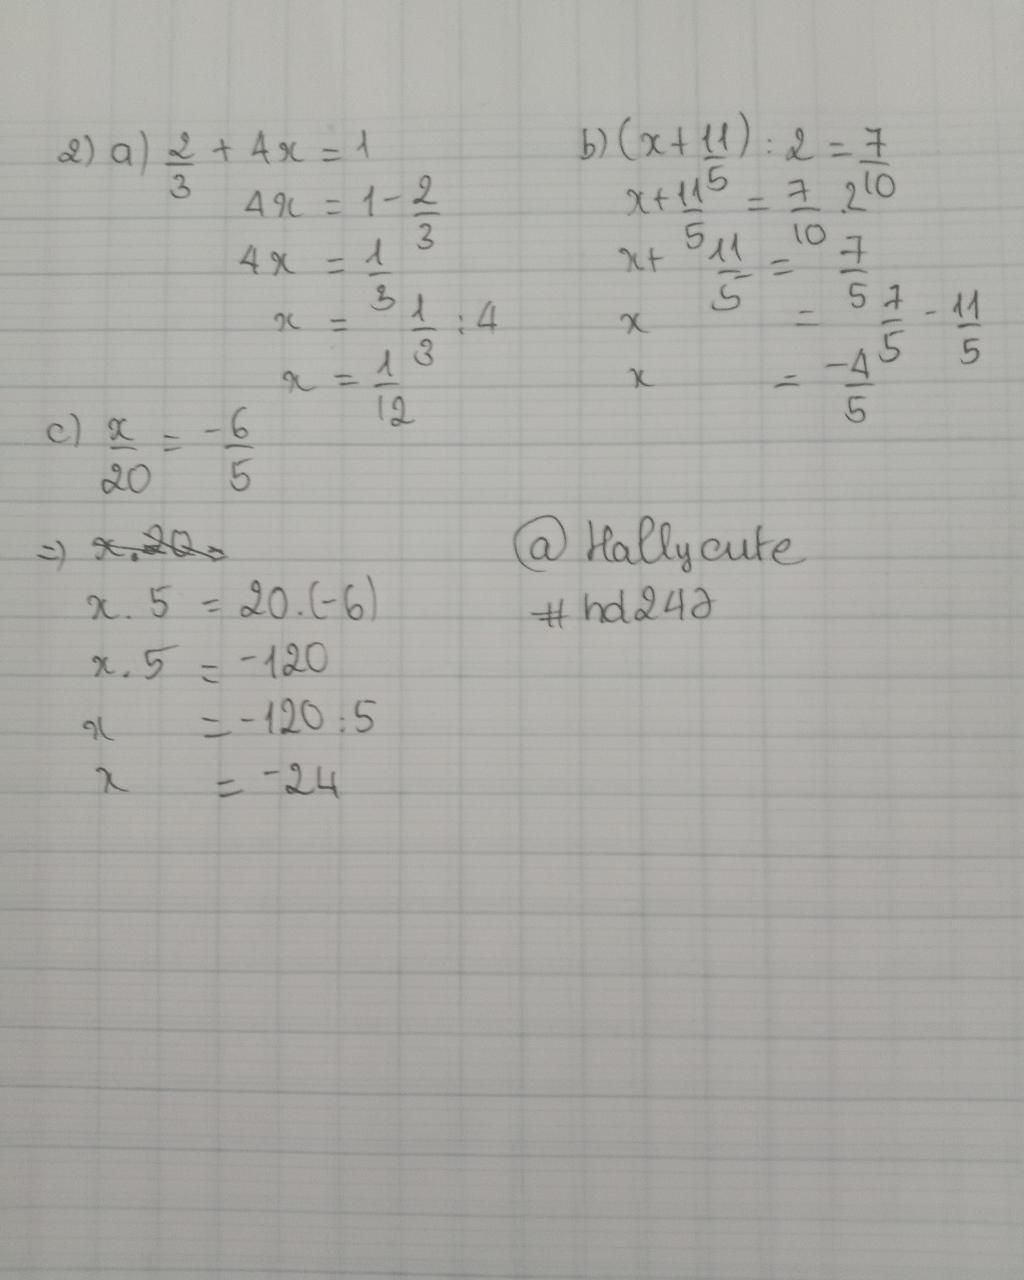 2) a) 2/3 + 4x = 1
4x = 1 - 2/3
4x = 1/3
x = 1/3 : 4
x = 1/12
b) (x + 11/5) : 2 = 7/10
x + 11/5 = 7/10 . 2
x + 11/5 = 7/5
x = 7/5 - 11/5
x = -4/5
c) x/20 = -6/5
=) x.20=
x . 5 = 20.(-6)
x . 5 = -120
x = -120 : 5
x = -24
@ Hallycute
# hd247